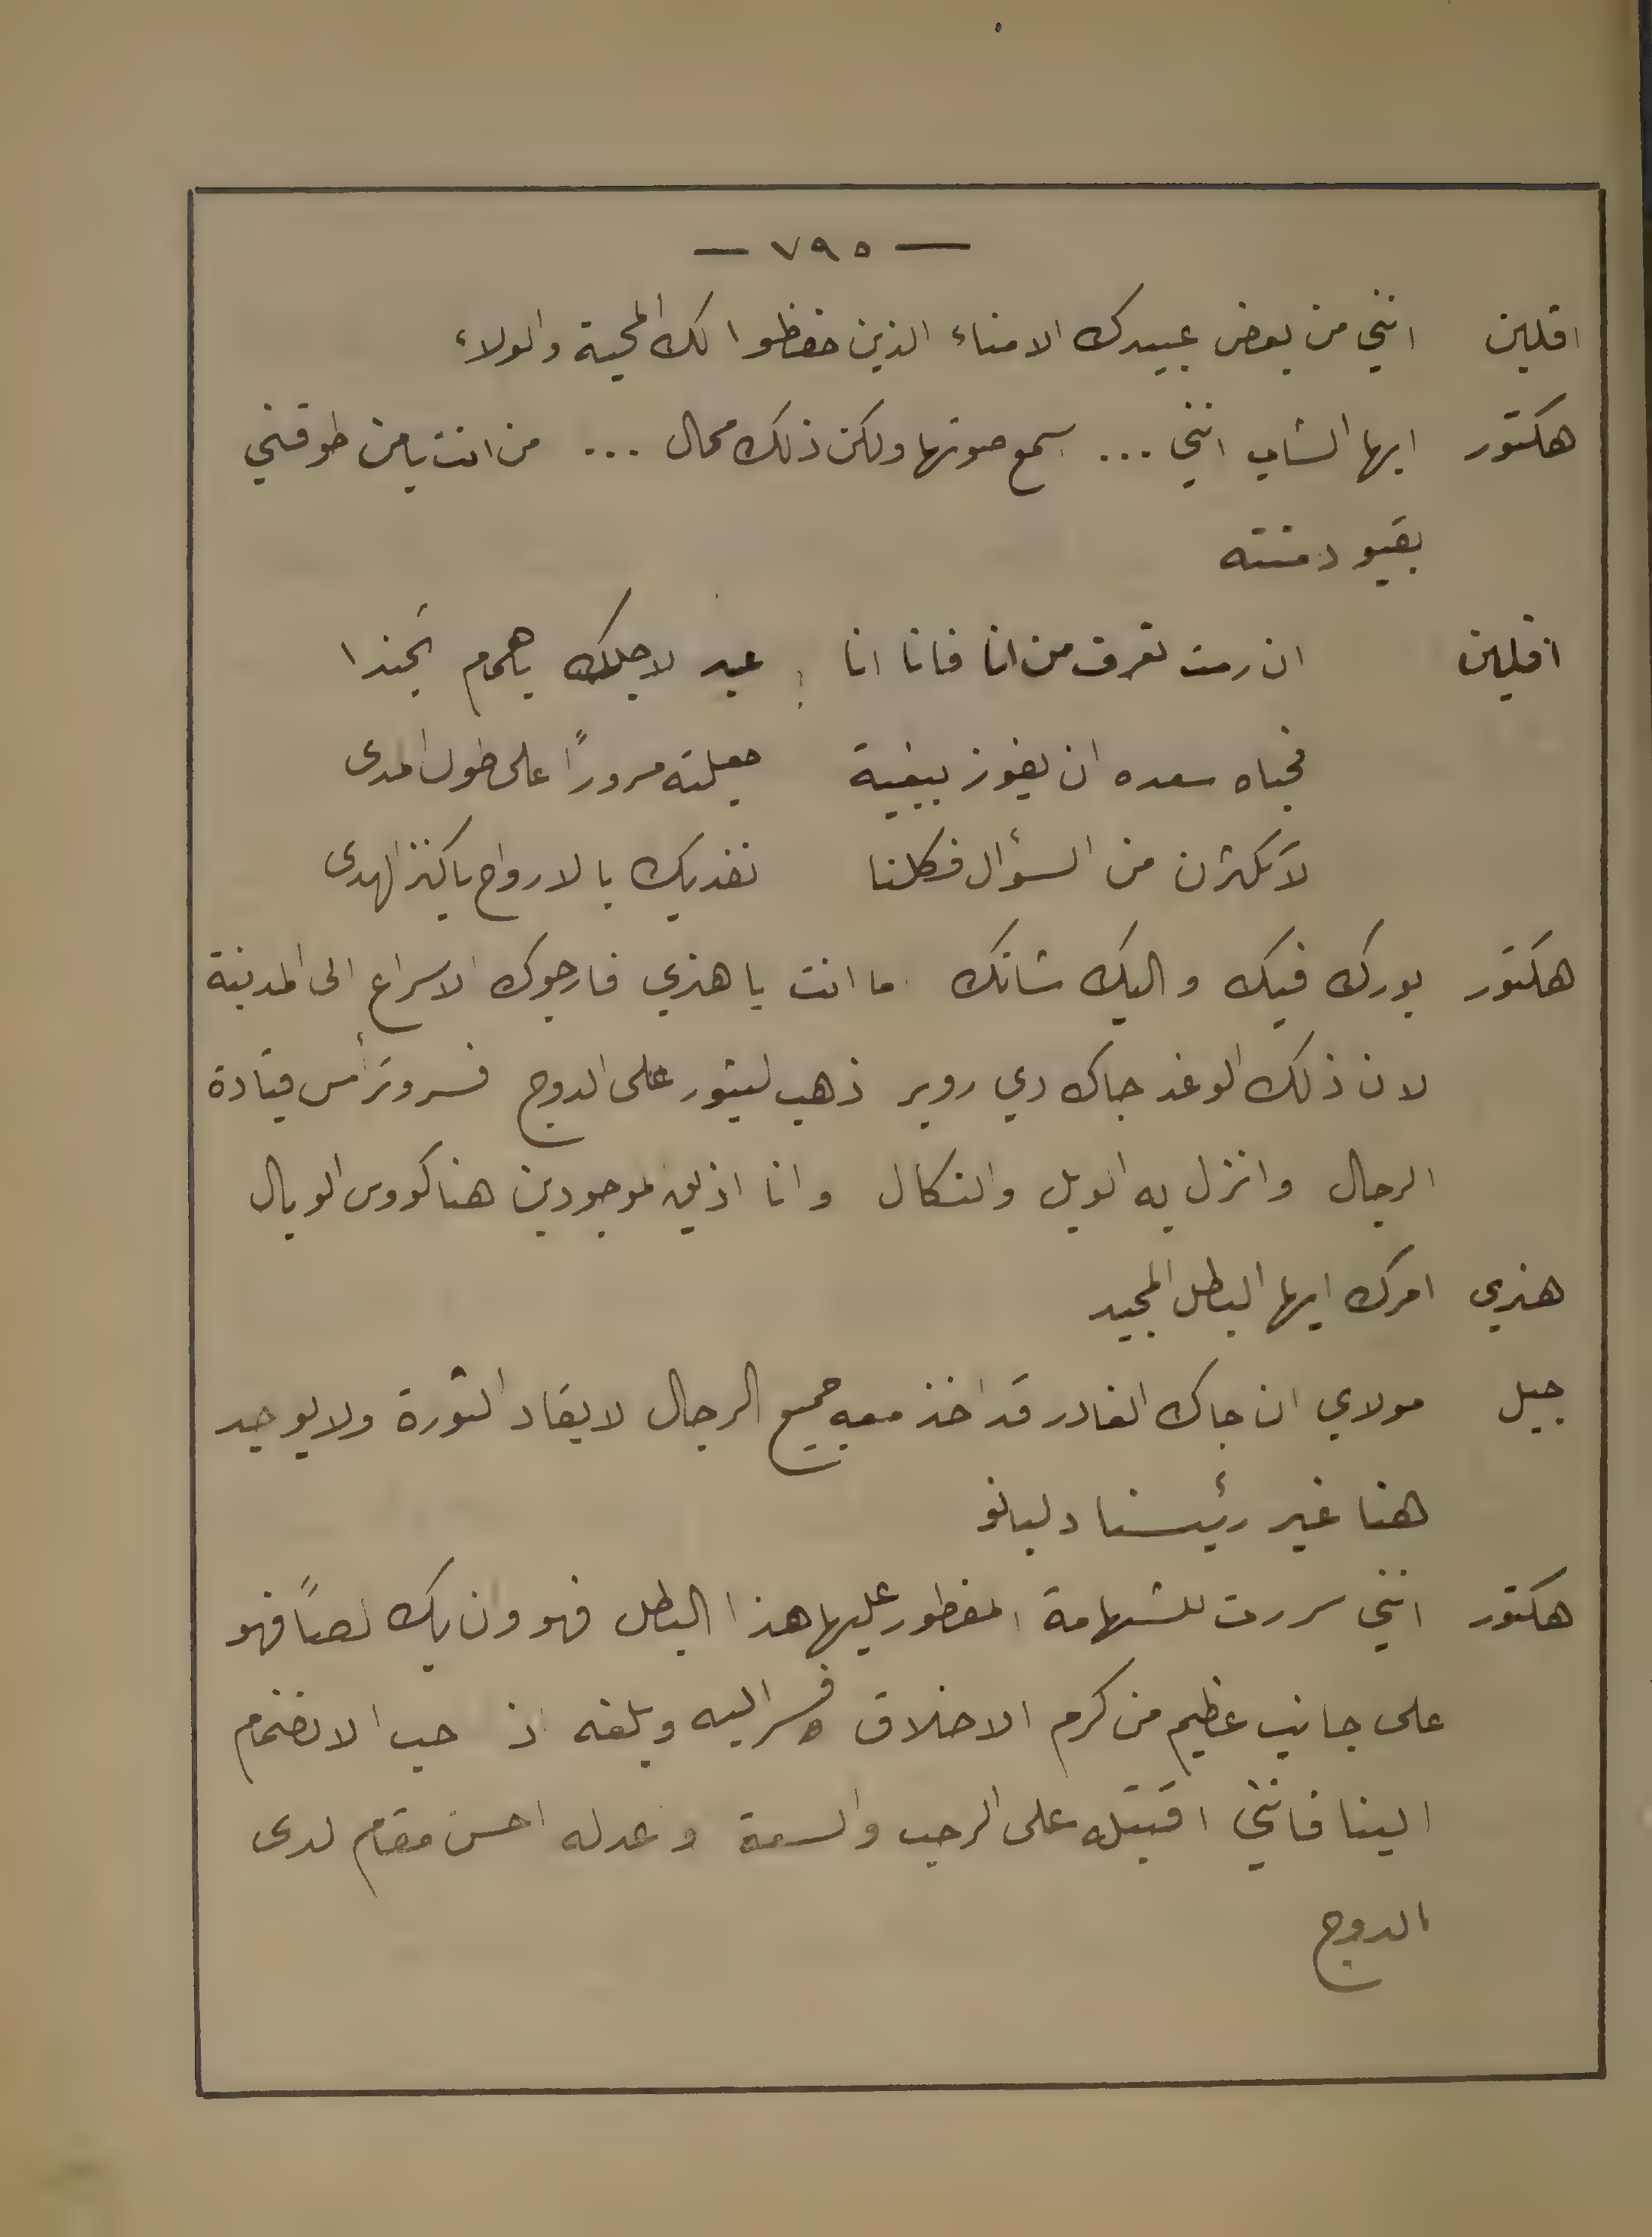 — ٧٩٥ —
افلين انني من بعض عبيدك الامناء الذين حفظوا لك المحبة والولاء
هكتور ايها الشاب انني ... اسمع صوتها ولكن ذلك محال ... من انت يا من طوقني
بقيود منته
افلين ان رمت تعرف من انا فانا انا عبد لاجلك يا همام تجندا
فحباه سعده ان يفوز ببغية جعلته مسروراً على طول المدى
لا تكثرن من السؤال فكلنا نفديك بالارواح يا كنز الهدى
هكتور بورك فيك واليك شانك اما انت يا هنري فارجوك الاسراع الى المدينة
لان ذلك الوغد جاك دي روبر ذهب ليثور على الدوج فسر وترأس قيادة
الرجال وانزل به الويل والنكال وانا اذيق الموجودين هنا كووس الوبال
هنري امرك ايها البطل المجيد
جيل مولاي ان جاك الغادر قد اخذ معه جميع الرجال لايقاد الثورة ولا يوجد
هنا غير رئيسنا دلبانو
هكتور انني سررت للشهامة المفطور عليها هذا البطل فهو وان يك لصاً فهو
على جانب عظيم من كرم الاخلاق فسر اليه وبلغه اذ حب الانضمام
الينا فانني اقبله على الرحب والسعة وعد له احسن مقام لدى
الدوج